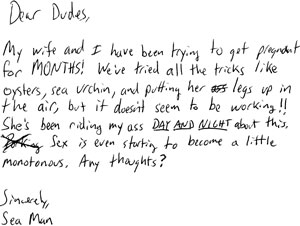 Dear Dudes,
My wife and I have been trying to get pregnant
for MONTHS! We've tried all the tricks like
oysters, sea urchin, and putting her legs up in
the air, but it doesn't seem to be working!!
She's been riding my ass DAY AND NIGHT about this.
Sex is even starting to become a little
monotonous. Any thoughts?
Sincerely,
Sea Man